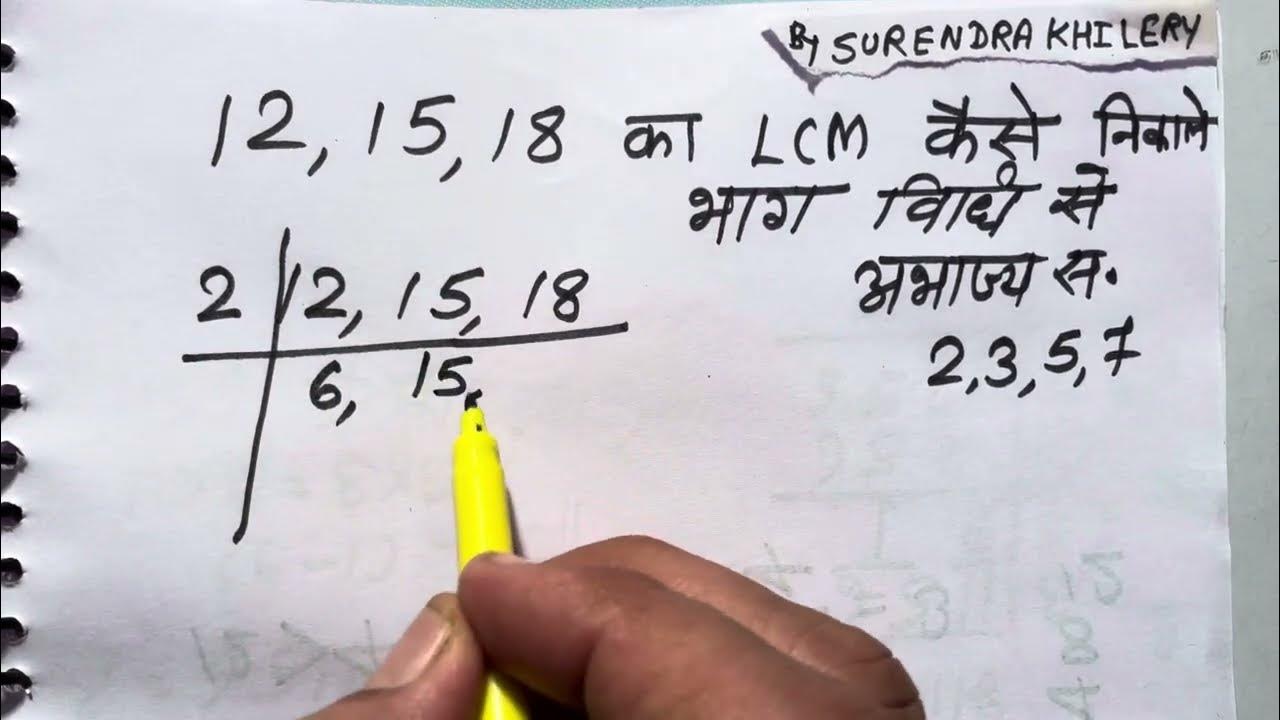 By SURENDRA KHILERY
12, 15, 18 का LCM कैसे निकाले
भाग विधि से
अभाज्य स.
2, 3, 5, 7
2 12, 15, 18
6, 15,